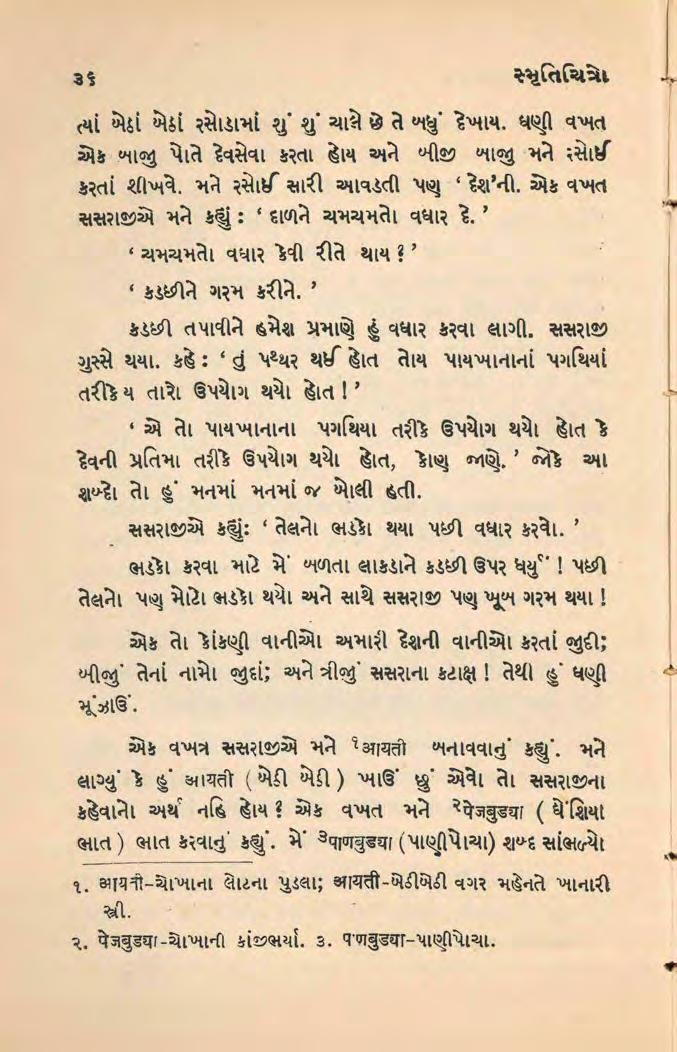 ૩૬ સ્મૃતિચિત્રો
ત્યાં બેઠાં બેઠાં રસોડામાં શું શું ચાલે છે તે બધું દેખાય. ઘણી વખત
એક બાજુ પોતે દેવસેવા કરતા હોય અને બીજી બાજુ મને રસોઈ
કરતાં શીખવે. મને રસોઈ સારી આવડતી પણ ‘ દેશ’ની. એક વખત
સસરાજીએ મને કહ્યું : ‘ દાળને ચમચમતો વઘાર દે. ’
‘ ચમચમતો વઘાર કેવી રીતે થાય ? ’
‘ કડછીને ગરમ કરીને. ’
કડછી તપાવીને હમેશ પ્રમાણે હું વઘાર કરવા લાગી. સસરાજી
ગુસ્સે થયા. કહે : ‘ તું પથ્થર થઈ હોત તોય પાયખાનાનાં પગથિયાં
તરીકેય તારો ઉપયોગ થયો હોત ! ’
‘ એ તો પાયખાનાના પગથિયા તરીકે ઉપયોગ થયો હોત કે
દેવની પ્રતિમા તરીકે ઉપયોગ થયો હોત, કોણ જાણે. ’ જોકે આ
શબ્દો તો હું મનમાં મનમાં જ બોલી હતી.
સસરાજીએ કહ્યું: ‘ તેલનો ભડકો થયા પછી વઘાર કરવો. ’
ભડકો કરવા માટે મેં બળતા લાકડાને કડછી ઉપર ધર્યું ! પછી
તેલનો પણ મોટો ભડકો થયો અને સાથે સસરાજી પણ ખૂબ ગરમ થયા !
એક તો કોંકણી વાનીઓ અમારી દેશની વાનીઓ કરતાં જુદી;
બીજું તેનાં નામો જુદાં; અને ત્રીજું સસરાના કટાક્ષ ! તેથી હું ઘણી
મૂંઝાઉં.
એક વખત્ર સસરાજીએ મને ૧आयती બનાવવાનું કહ્યું. મને
લાગ્યું કે હું आयती ( બેઠી બેઠી ) ખાઉં છું એવો તો સસરાજીના
કહેવાનો અર્થ નહિ હોય ? એક વખત મને ૨पेजबुडया ( ઘેંશિયા
ભાત ) ભાત કરવાનું કહ્યું. મેં ૩पाणबुडया (પાણીપોચા) શબ્દ સાંભળ્યો
૧. आयती-ચોખાના લોટના પુડલા; आयती-બેઠીબેઠી વગર મહેનતે ખાનારી
સ્ત્રી.
૨. पेजबुडया-ચોખાની કાંજીભર્યા. ૩. पाणबुडया-પાણીપોચા.